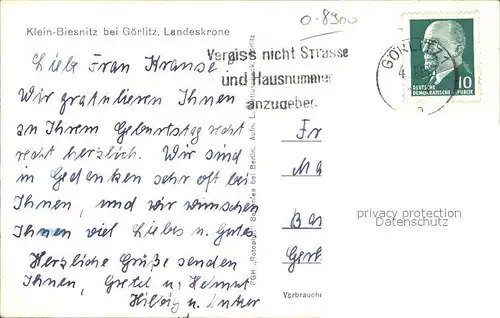 0-8900
Klein-Biesnitz bei Görlitz, Landeskrone
Vergiss nicht Strasse
und Hausnummer
anzugeben
GÖRLITZ 1
10
DEUTSCHE
DEMOKRATISCHE REPUBLIK
Liebe Frau Krause,
Wir gratulieren Ihnen
an Ihrem Geburtstag recht
recht herzlich. Wir sind
in Gedanken sehr oft bei
Ihnen, und wir wünschen
Ihnen viel Liebes u. Gutes.
Herzliche Grüße senden
Ihnen, Gretel u. Helmut
u.
Fr
Ma
Ba
Gerl
privacy protection
Datenschutz
Verbrauch